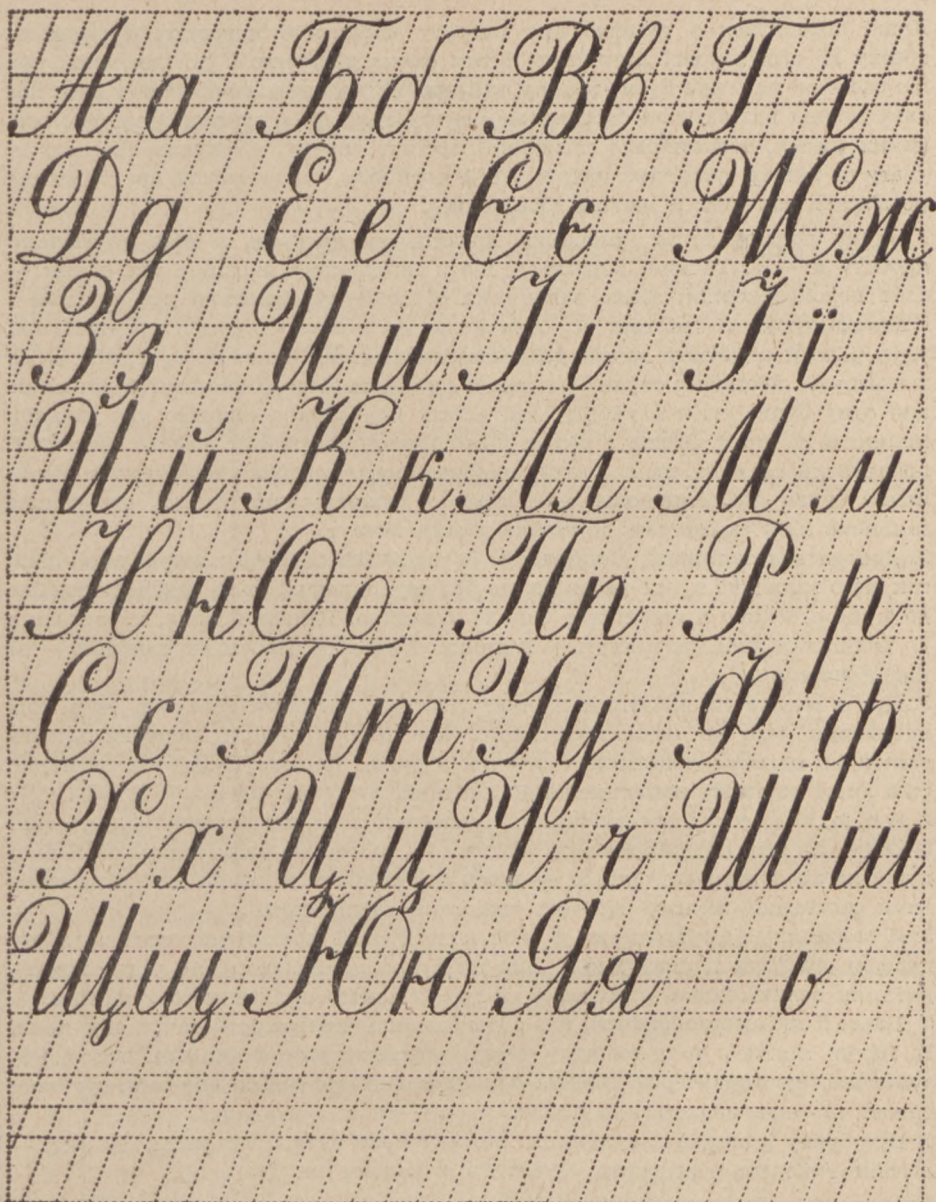 Аа Бб Вв Гг
Дд Ее Єє Жж
Зз Ии Іі Її
Йй Кк Лл Мм
Нн Оо Пп Рр
Сс Тт Уу Фф
Хх Цц Чч Шш
Щщ Юю Яя ь